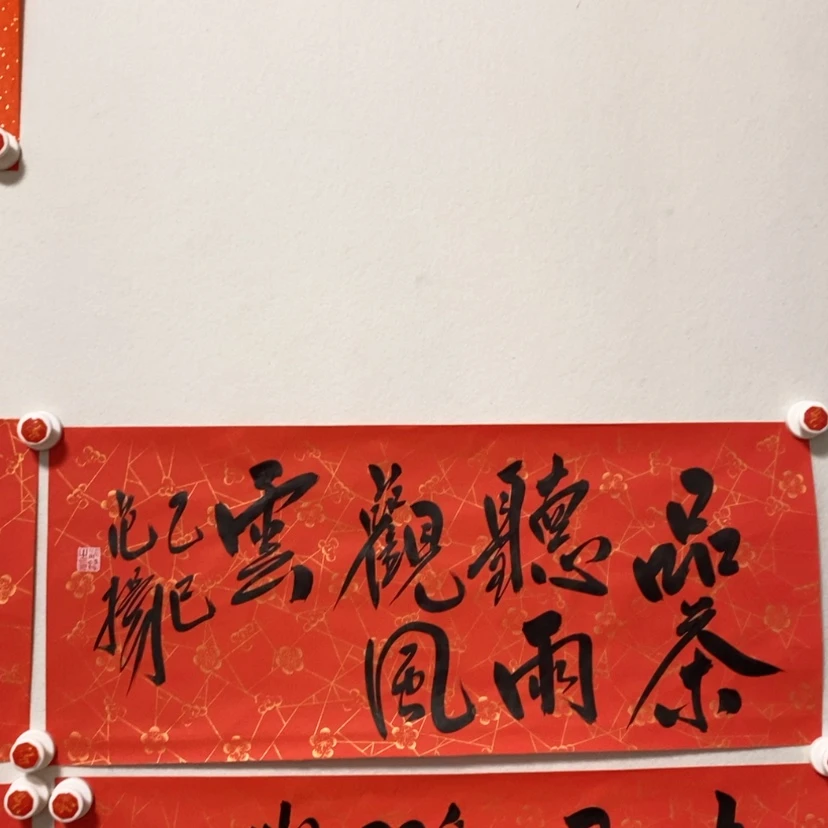 品茶
聽雨
觀風
雲
乙巳